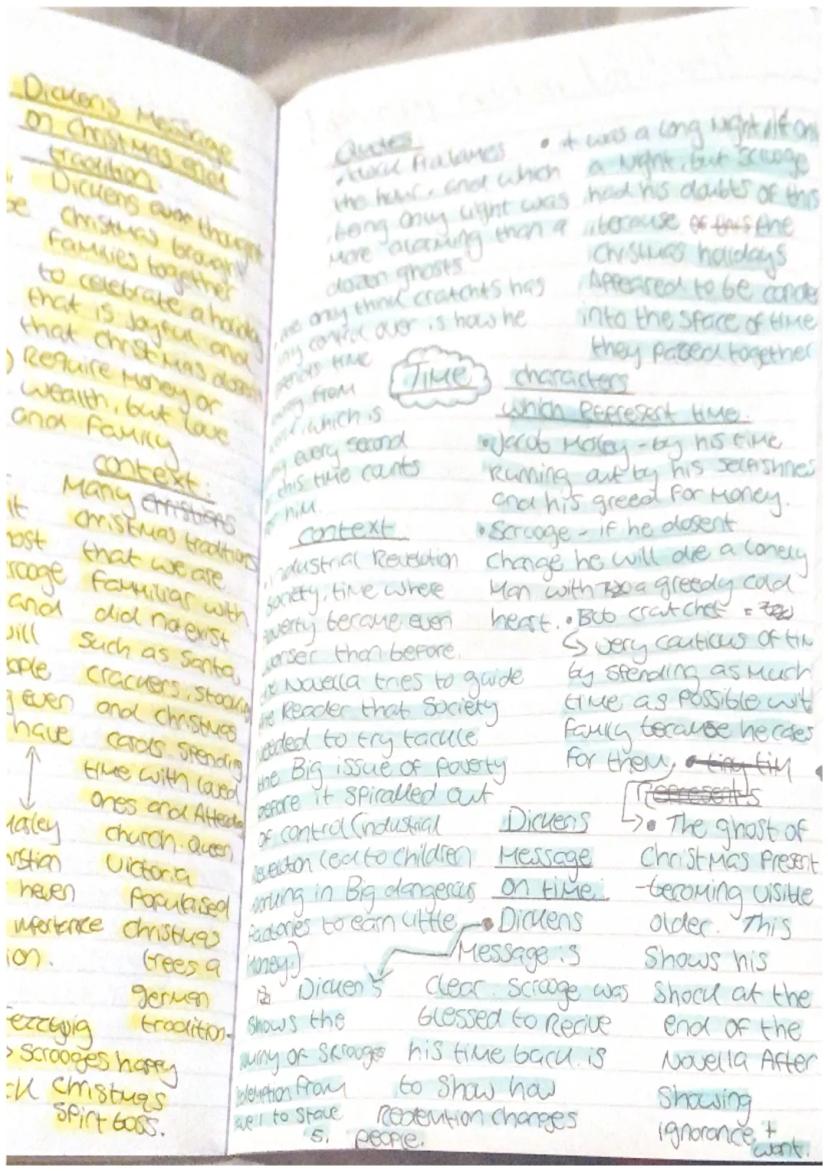 Dickens Message
on christmas and
tradition.
Dickens ever thought
christmas brought
families together
to celebrate a holiday
that is joyful and
that christmas doesn
Require money or
wealth, but love
and family
context.
Many christians
christmas traditions
that we are
familiar with
did no exist
such as Santa,
crackers, stocking
and christmas
carols. spending
time with loved
ones and Attend
church. queen
Victoria
Populised
christmas
trees a
german
tradition.
it
ost
crooge
and
will
ople
g even
have
Marley
ristian
heven
importance
ion.
ezziwig
> scrooges happy
ck christmas
spirt boss.
Quotes
the hour, and which
being only light was
more alarming than a
dozen ghosts
• it was a long night, if on
a night, but scrooge
had his doubts of this
because of this the
christmas holidays
Appeared to be conde
into the space of time
they passed together
one only thing cratchits has
any control over is how he
spends time
away from
which is
every second
this time counts
for him.
Time
characters
which Represent time.
• Jacob Marley - by his time
Running out by his selfishnes
and his greed for money.
• Scrooge - if he dosent
change he will die a lonely
Man with a greedy cold
heart. • Bob cratchet =
↳ very cautious of tim
by spending as much
time as possible wit
family because he cares
for them, • tiny tim
represents
→ • The ghost of
Christmas Present
-becoming visible
older. This
shows his
shock at the
end of the
Novella After
Showing
ignorance +
want.
context
industrial Revolution
society, time where
poverty became even
worser than before.
Novella tries to guide
the Reader that society
needed to try tackle
the Big issue of poverty
before it spiralled out
of control (industrial
Revolution lead to children
working in Big dangerous
factories to earn little
money.)
Dickens
Message
on time.
• Dickens
Message is
clear. Scrooge was
blessed to Recive
his time back. is
to show how
Redemtion changes
people.
Dicken's
shows the
of Scrooge
from
to stave
5.